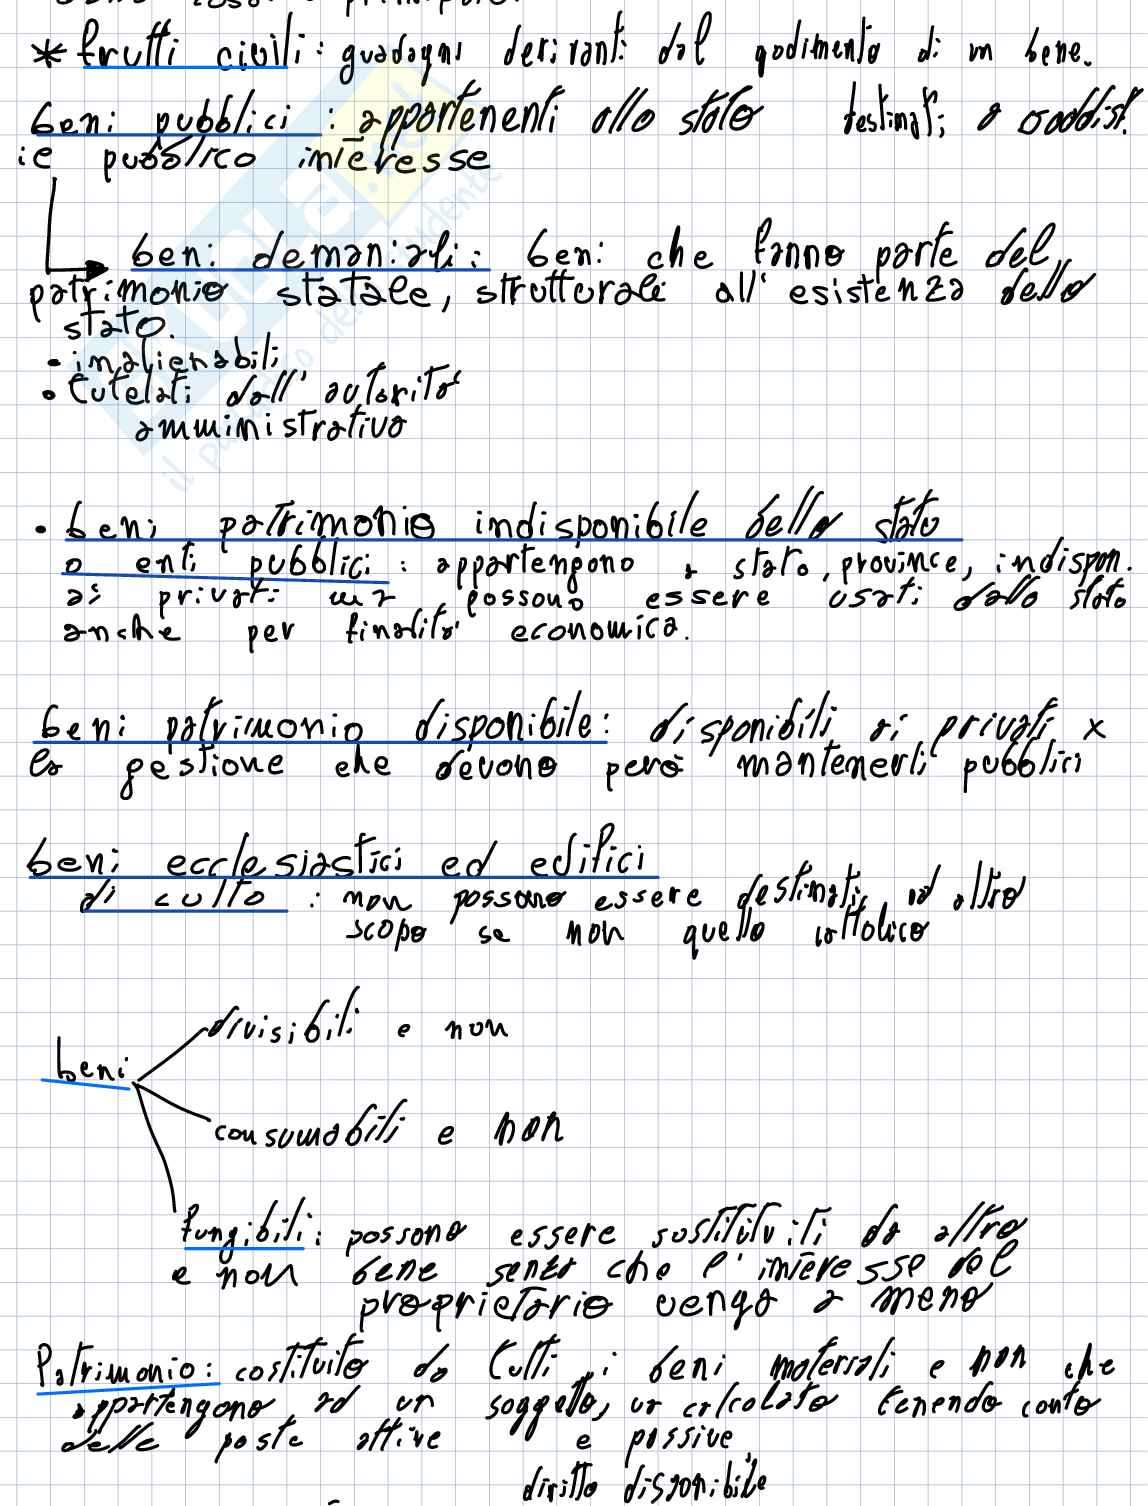 * frutti civili: guadagni derivanti dal godimento di un bene.
beni pubblici: appartenenti allo stato destinati a soddisf.
ie pubblico interesse
beni demaniali: beni che fanno parte del
patrimonio statale, strutturali all'esistenza dello
stato.
• inalienabili
• tutelati dall'autorità
amministrativa
• beni patrimonio indisponibile dello stato
o enti pubblici: appartengono a stato, province, indispon.
ai privati ma possono essere usati dallo stato
anche per finalità economica.
beni patrimonio disponibile: disponibili ai privati x
la gestione che devono però mantenerli pubblici
beni ecclesiastici ed edifici
di culto: non possono essere destinati ad altro
scopo se non quello cattolico
divisibili e non
beni
consumabili e non
fungibili: possono essere sostituiti da altro
e non bene senza che l'interesse del
proprietario venga a meno
Patrimonio: costituito da tutti i beni materiali e non che
appartengono ad un soggetto, va calcolato tenendo conto
delle poste attive e passive
diritto disponibile